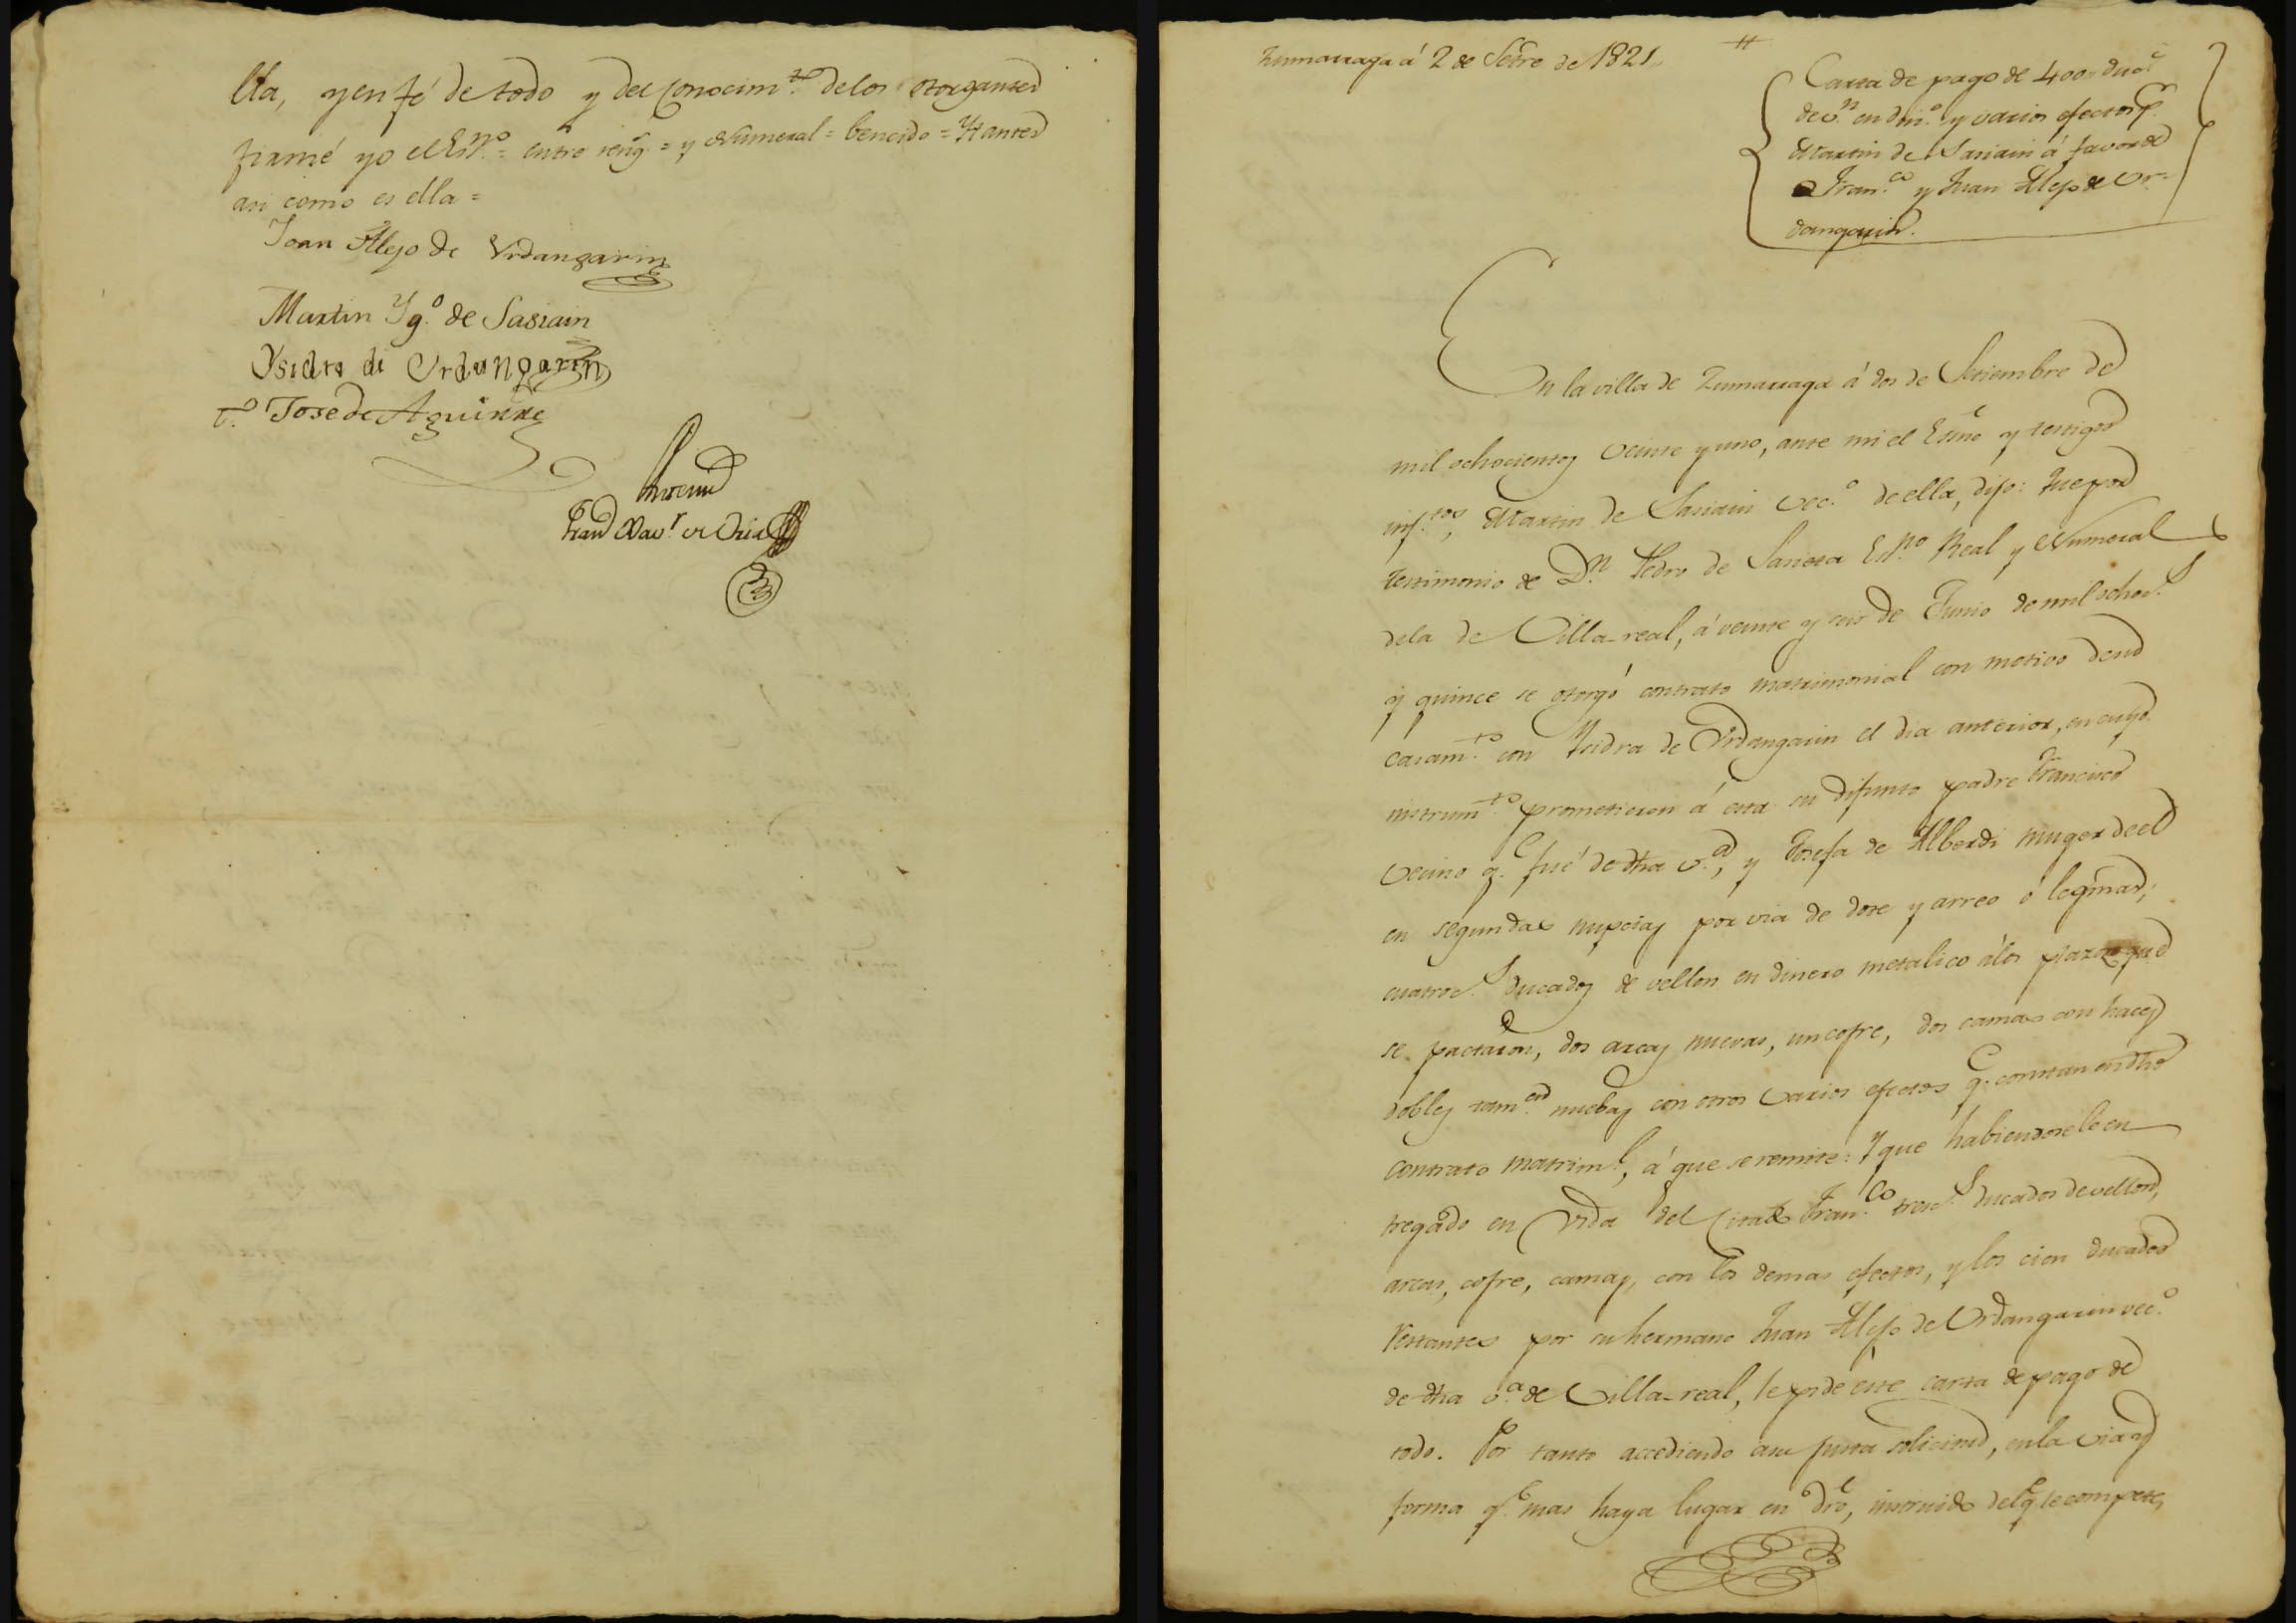 lla, y en fé de todo y del conocim.to de los otorgantes
firmé yo el Esno = entre reng. = y Numeral = bencido = Y antes
asi como es ella =
Joan Alejo de Vrdangarin
Martin Yg.o de Sasiain
Ysidra de Vrdangarin
t.o Jose de Aguirre
Ante mi
Zumarraga á 2 de Setre de 1821
Carta de pago de 400 duc.s
de v.n en din.o y varios efectos p.r
Martin de Sasiain á favor de
Fran.co y Juan Alejo de Ur-
dangarin.
En la villa de Zumarraga á dos de Setiembre de
mil ochocientos veinte y uno, ante mi el Esno y testigos
inf.tos, Martin de Sasiain vec.o de ella, dijo: Que por
testimonio de D.n Pedro de Esno Real y Numeral
dela de Villa-real, á veinte y seis de Junio de mil ochoc.s
y quince se otorgó contrato matrimonial con motivo de su
casam.to con Ysidra de Vrdangarin el dia anterior, en cuyo
instrum.to prometieron á esta su difunto padre Francisco
vecino q.e fué de dha v.a, y Josefa de Alberdi muger de el
en segundas nupcias por via de dote y arreo ó legmas,
cuatroc.s ducados de vellon en dinero metalico á los plazos que
se pactaron, dos arcas nuevas, un cofre, dos camas con haces
dobles tam.en nuebas con otros varios efectos q.e constan en dho
contrato matrim.l, á que se remite: Y que habiendosele en
tregado en vida del citado Fran.co tresc.s ducados de vellon,
arcas, cofre, camas, con los demas efectos, y los cien ducados
restantes por su hermano Juan Alejo de Urdangarin vec.o
de dha v.a de Villa-real, le pide este carta de pago de
todo. Por tanto accediendo a su justa solicitud, en la via y
forma q.e mas haya lugar en dro, instruido del q.e le compete,